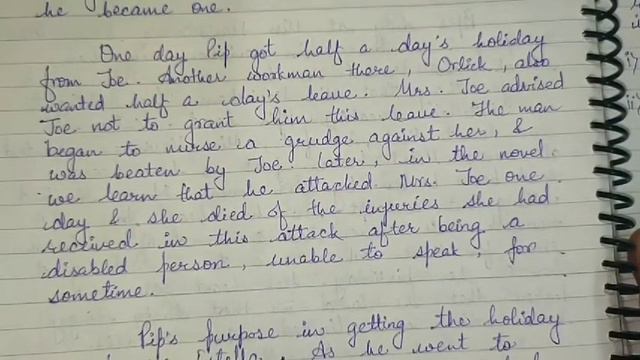 he became one.
One day Pip got half a day's holiday
from Joe. Another workman there, Orlick, also
wanted half a day's leave. Mrs. Joe advised
Joe not to grant him this leave. The man
began to nurse a grudge against her, &
was beaten by Joe. Later, in the novel
we learn that he attacked Mrs. Joe one
day & she died of the injuries she had
received in this attack after being a
disabled person, unable to speak, for
sometime.
Pip's purpose in getting the holiday
As he went to